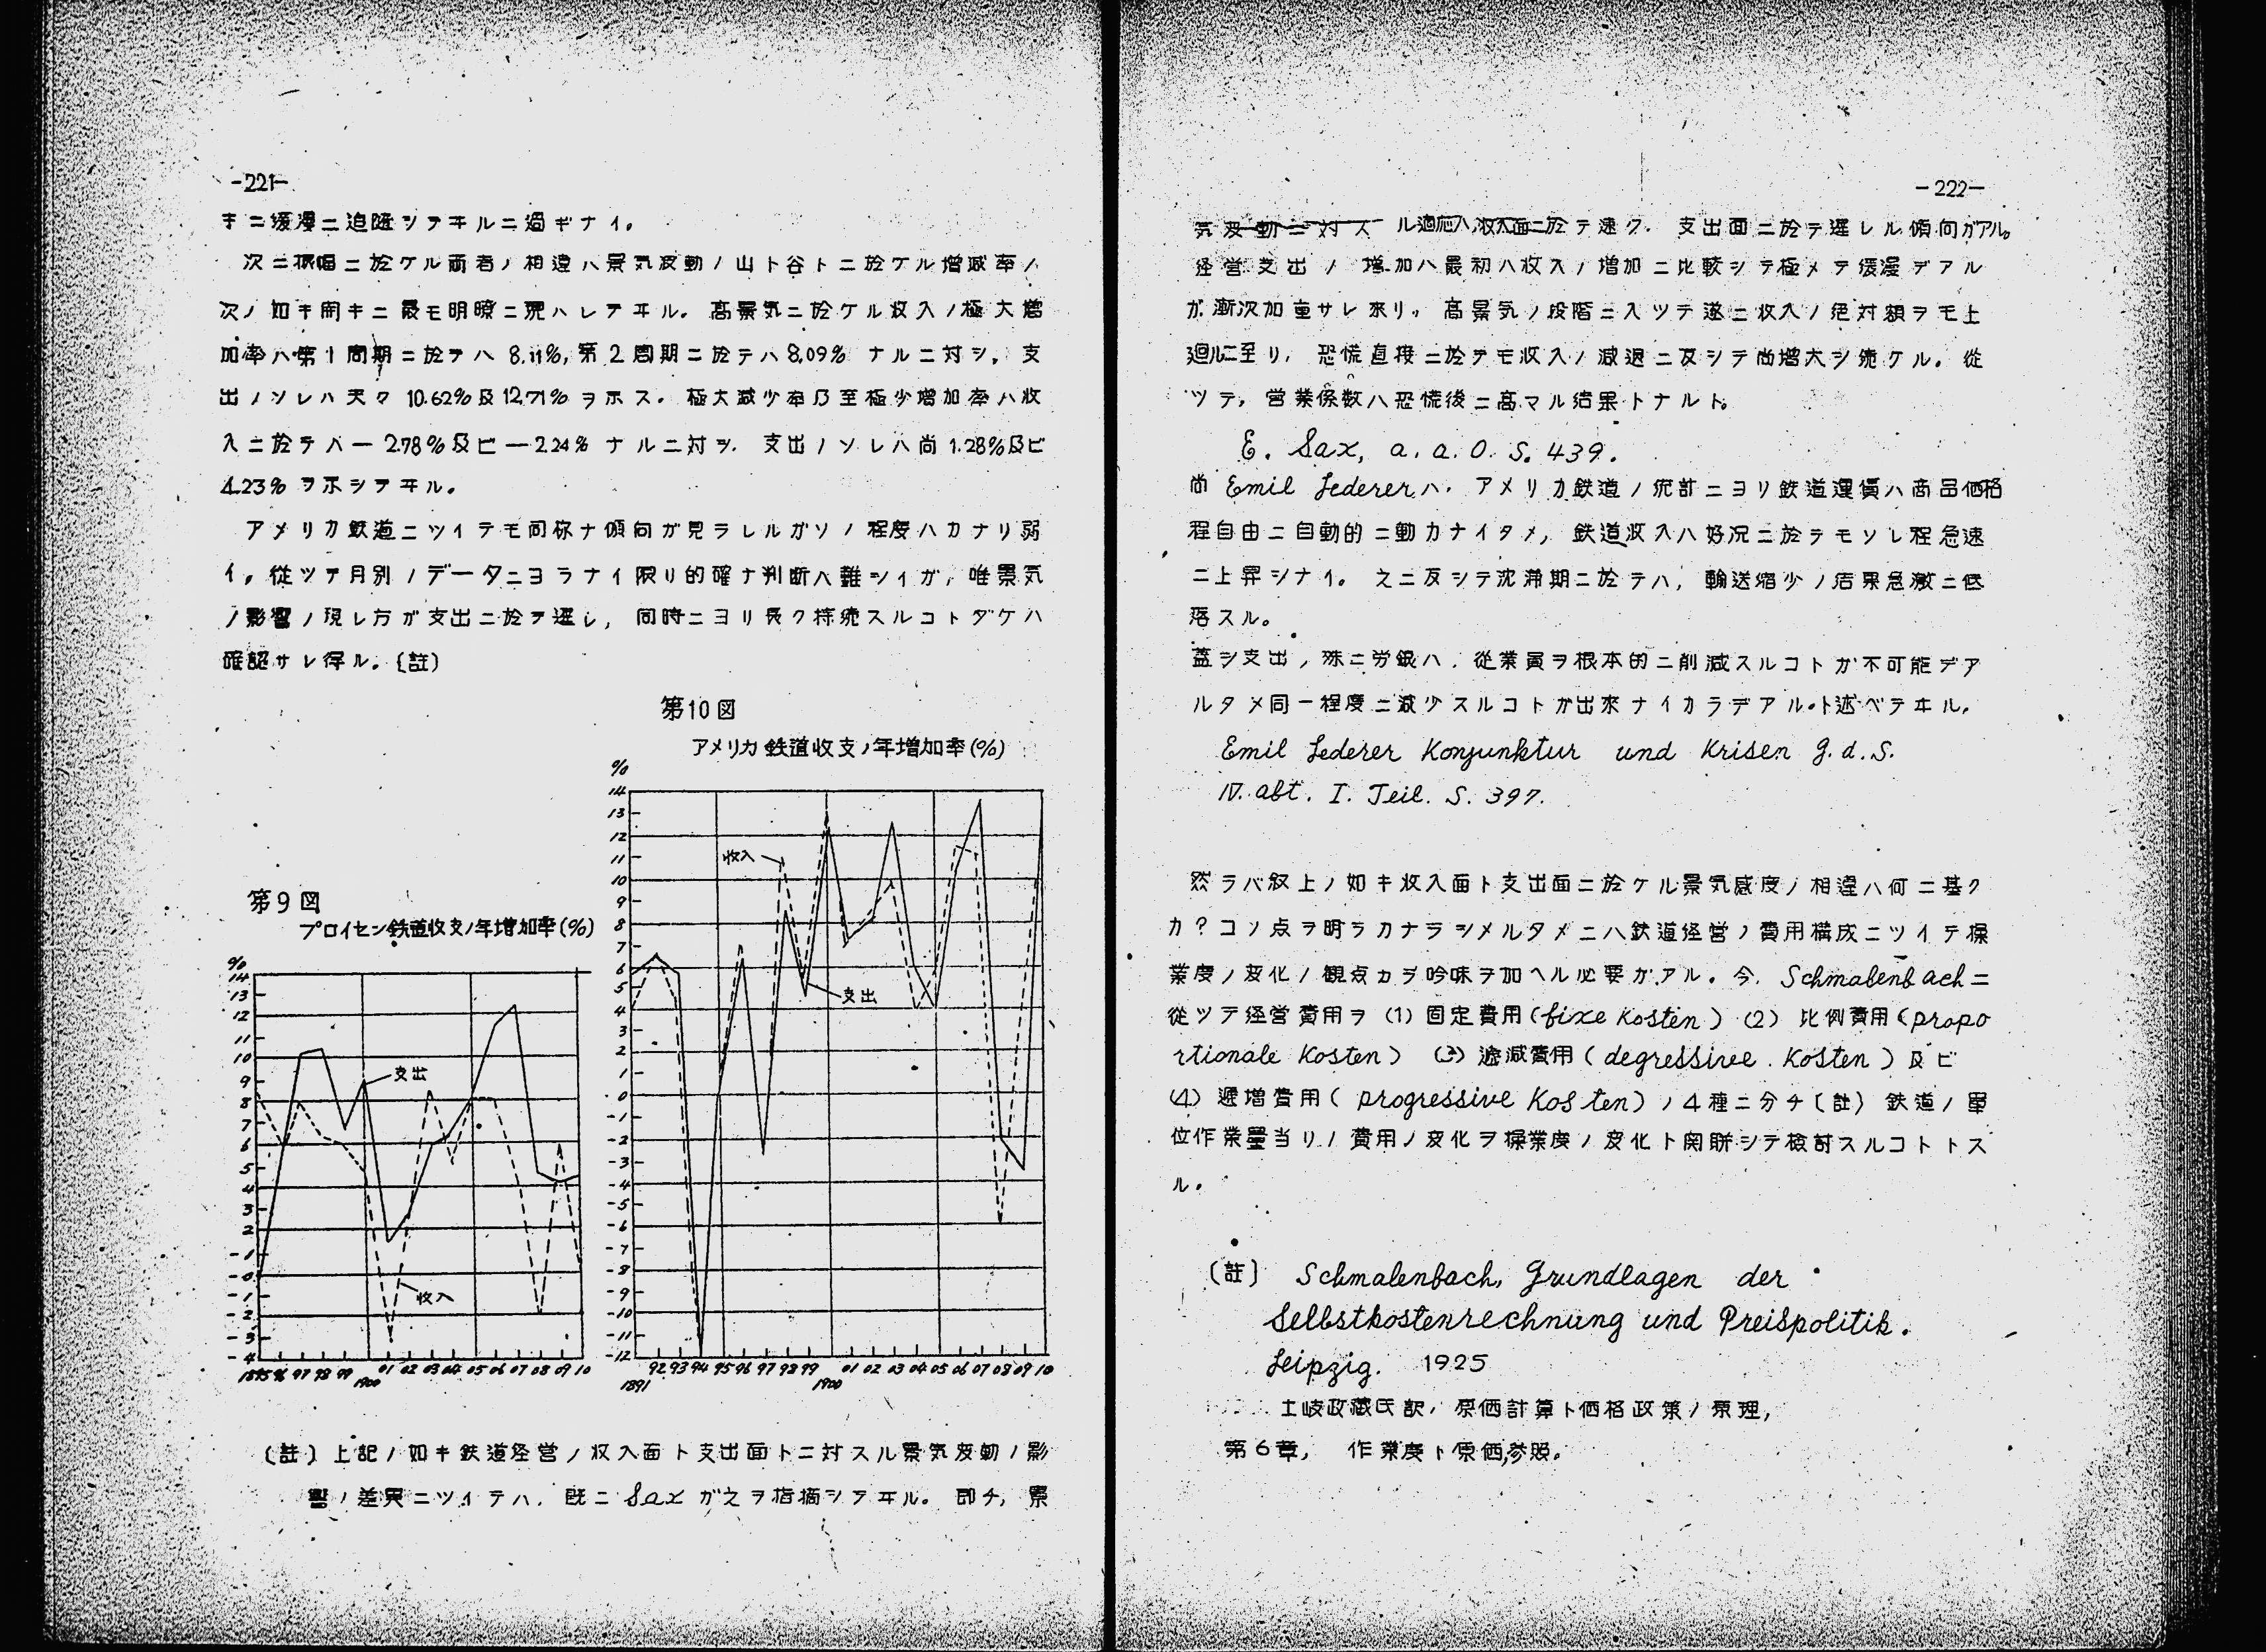 -221-
キニ緩漫ニ追随シテヰルニ過ギナイ。
次ニ振幅ニ於ケル両者ノ相違ハ景気波動ノ山ト谷トニ於ケル増減率ノ
次ノ如キ開キニ最モ明瞭ニ現ハレテヰル。高景気ニ於ケル收入ノ極大増
加率ハ第1周期ニ於テハ 8.11%,第2周期ニ於テハ8,09% ナルニ対シ,支
出ノソレハ夫々 10.62%及12.71% ヲ示ス。極大減少率乃至極少増加率ハ收
入ニ於テハ-2.78%及ビ-2.24% ナルニ対シ,支出ノソレハ尚 1.28%及ビ
4.23% ヲ示シテヰル。
アメリカ鉄道ニツイテモ同様ナ傾向ガ見ラレルガソノ程度ハカナリ弱
イ。從ツテ月別ノデータニヨラナイ限リ的確ナ判断ハ難シイガ,唯景気
ノ影響ノ現レ方ガ支出ニ於テ遅レ,同時ニヨリ長ク持続スルコトダケハ
確認サレ得ル。〔註〕
第10図
アメリカ鉄道收支ノ年増加率(%)
%
14
13
12
11
10
9
8
7
6
5
4
3
2
1
0
-1
-2
-3
-4
-5
-6
-7
-8
-9
-10
-11
-12
收入
支出
1891 92 93 94 95 96 97 98 99 1900 01 02 03 04 05 06 07 08 09 10
第9図
プロイセン鉄道收支ノ年増加率(%)
%
14
13
12
11
10
9
8
7
6
5
4
3
2
-1
-0
-1
-2
-3
-4
支出
收入
1895 96 97 98 99 1900 01 02 03 04 05 06 07 08 09 10
〔註〕上記ノ如キ鉄道経営ノ收入面ト支出面トニ対スル景気波動ノ影
響ノ差異ニツイテハ,既ニSaxガ之ヲ指摘シテヰル。即チ,景
-222-
気波動ニ対スル適応ハ,收入面ニ於テ速ク,支出面ニ於テ遅レル傾向ガアル。
経営支出ノ増加ハ最初ハ收入ノ増加ニ比較シテ極メテ緩漫デアル
ガ漸次加重サレ来リ,高景気ノ段階ニ入ツテ遂ニ收入ノ絶対額ヲモ上
廻ルニ至リ,恐慌直後ニ於テモ收入ノ減退ニ反シテ尚増大シ続ケル。從
ツテ,営業係数ハ恐慌後ニ高マル結果トナルト。
E. Sax, a. a. O. S. 439.
尚 Emil Lederer ハ,アメリカ鉄道ノ統計ニヨリ鉄道運賃ハ商品価格
程自由ニ自動的ニ動カナイタメ,鉄道收入ハ好況ニ於テモソレ程急速
ニ上昇シナイ。之ニ反シテ沈滞期ニ於テハ,輸送縮少ノ結果急激ニ低
落スル。
蓋シ支出,殊ニ労銀ハ,從業員ヲ根本的ニ削減スルコトガ不可能デア
ルタメ同一程度ニ減少スルコトガ出来ナイカラデアル・ト述ベテヰル。
Emil Lederer Konjunktur und Krisen G.d.S.
IV. abt. I. Teil. S. 397.
然ラバ叙上ノ如キ收入面ト支出面ニ於ケル景気感度ノ相違ハ何ニ基ク
カ?コノ点ヲ明ラカナラシメルタメニハ鉄道経営ノ費用構成ニツイテ操
業度ノ変化ノ観点カラ吟味ヲ加ヘル必要ガアル。今,Schmalenbachニ
從ツテ経営費用ヲ (1) 固定費用(fixe Kosten) (2) 比例費用(propo
rtionale Kosten) (3) 逓減費用(degressive Kosten)及ビ
(4) 逓増費用(progressive Kosten)ノ4種ニ分チ〔註〕鉄道ノ単
位作業量当リノ費用ノ変化ヲ操業度ノ変化ト関聯シテ検討スルコトトス
ル。
〔註〕 Schmalenbach, Grundlagen der
Selbstkostenrechnung und Preispolitik.
Leipzig. 1925
土岐政蔵氏訳,原価計算ト価格政策ノ原理,
第6章, 作業度ト原価,参照。